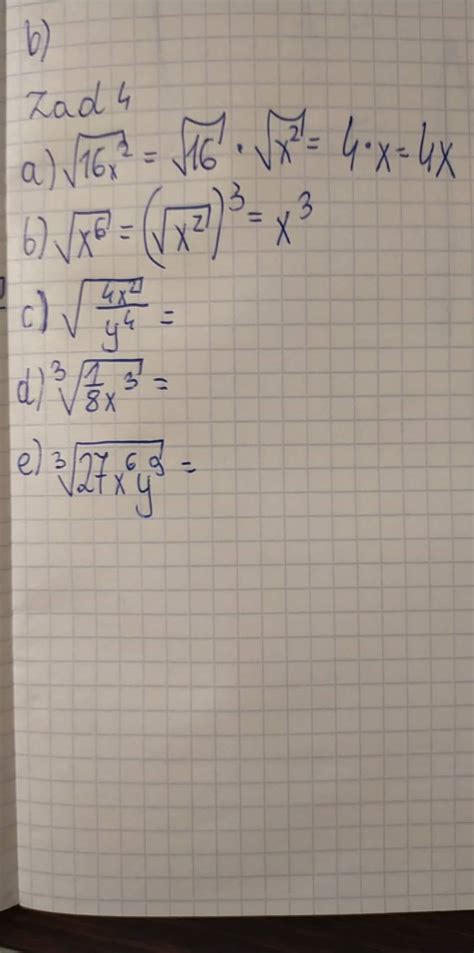 b)
Zad 4
a) √16x² = √16 · √x² = 4·x = 4x
b) √x⁶ = (√x²)³ = x³
c) √(4x²/y⁴) =
d) ³√(1/8 x³) =
e) ³√27x⁶y⁹ =